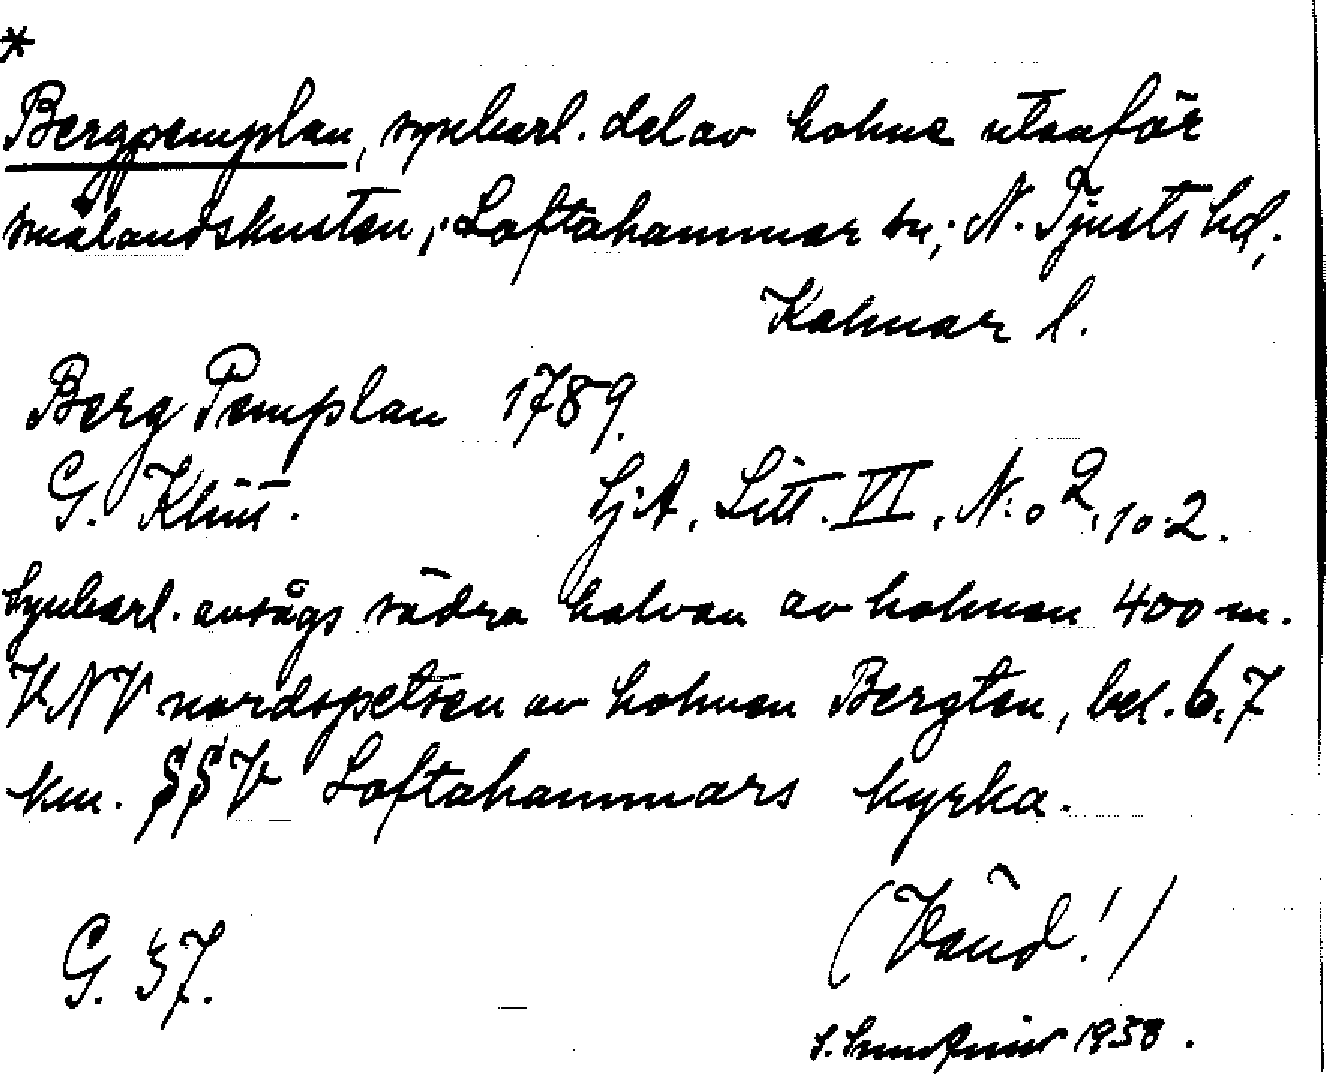 *
Bergpemplan, synbarl. del av holme utanför
smålandskusten; Loftahammar sn; N. Tjusts hd;
Kalmar l.
Berg Pemplan 1789.
G. Klint. SjA, Litt. VI, N:o 2, 10:2.
Synbarl. avsågs södra halvan av holmen 400 m.
VNV nordspetsen av holmen Bergten, bel. 6,7
km. SSV Loftahammars kyrka.
(Vänd!)
G. 37.
1938.